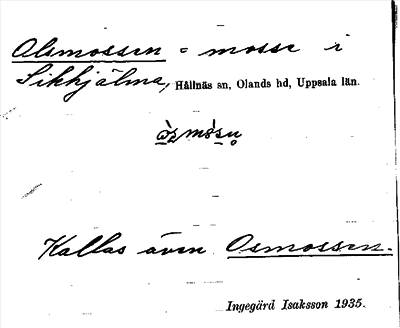 Alsmossen = mosse i
Sikhjälma, Hållnäs sn, Olands hd, Uppsala län.
Kallas även Osmossen.
Ingegärd Isaksson 1935.